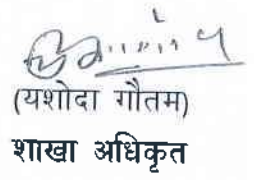 (यशोदा गौतम)
शाखा अधिकृत